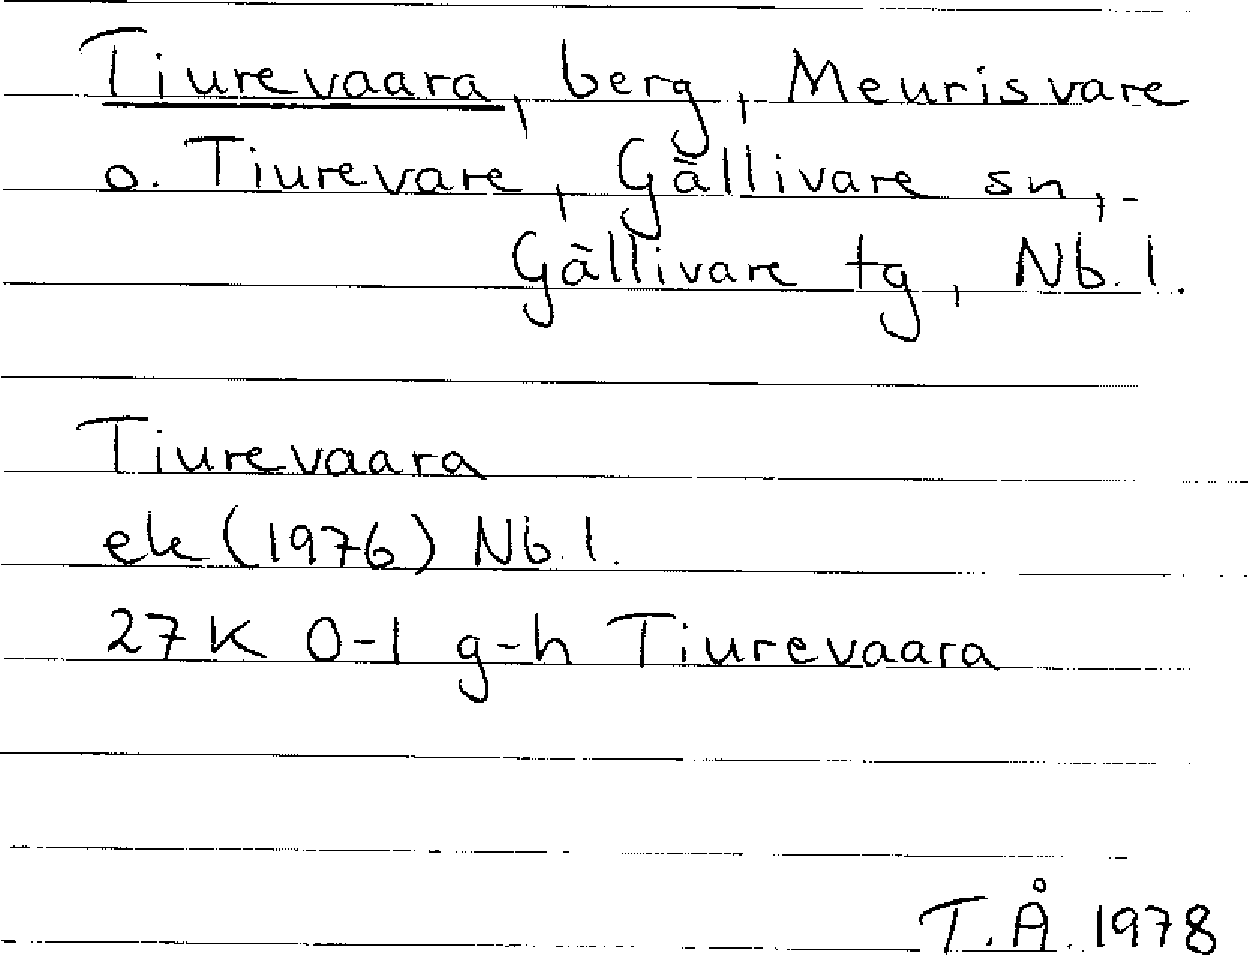 Tiurevaara, berg, Meurisvare
o. Tiurevare, Gällivare sn,-
Gällivare tg, Nb. l.
Tiurevaara
ek (1976) Nb. l.
27K 0-1 g-h Tiurevaara
T.Å. 1978